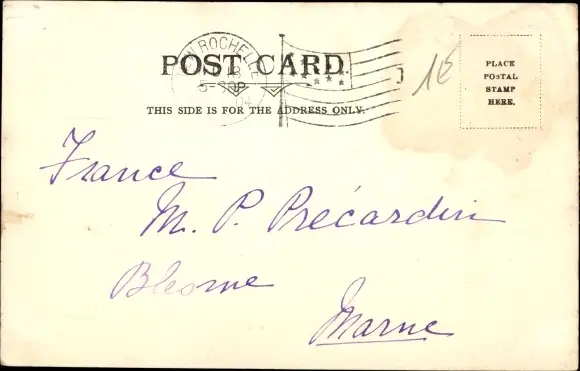 NEW ROCHELLE
POST CARD.
13
5-30P
04
1€
PLACE
POSTAL
STAMP
HERE.
THIS SIDE IS FOR THE ADDRESS ONLY.
France
M. P. Précardin
Blesme
Marne